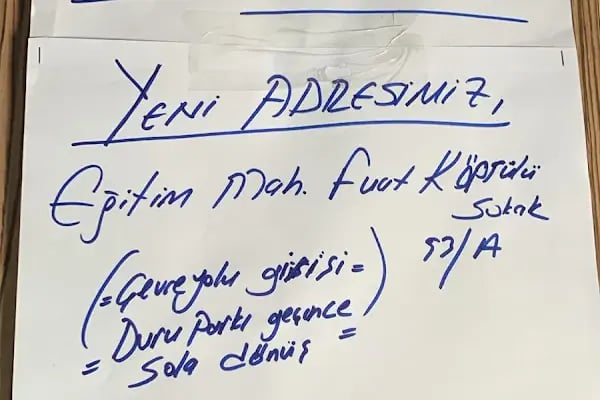 YENİ ADRESİMİZ,
Eğitim Mah. Fuat Köprülü
Sokak
53/A
(=Çevreyolu girişi=
Duru Parkı geçince)
= Sola dönüş =